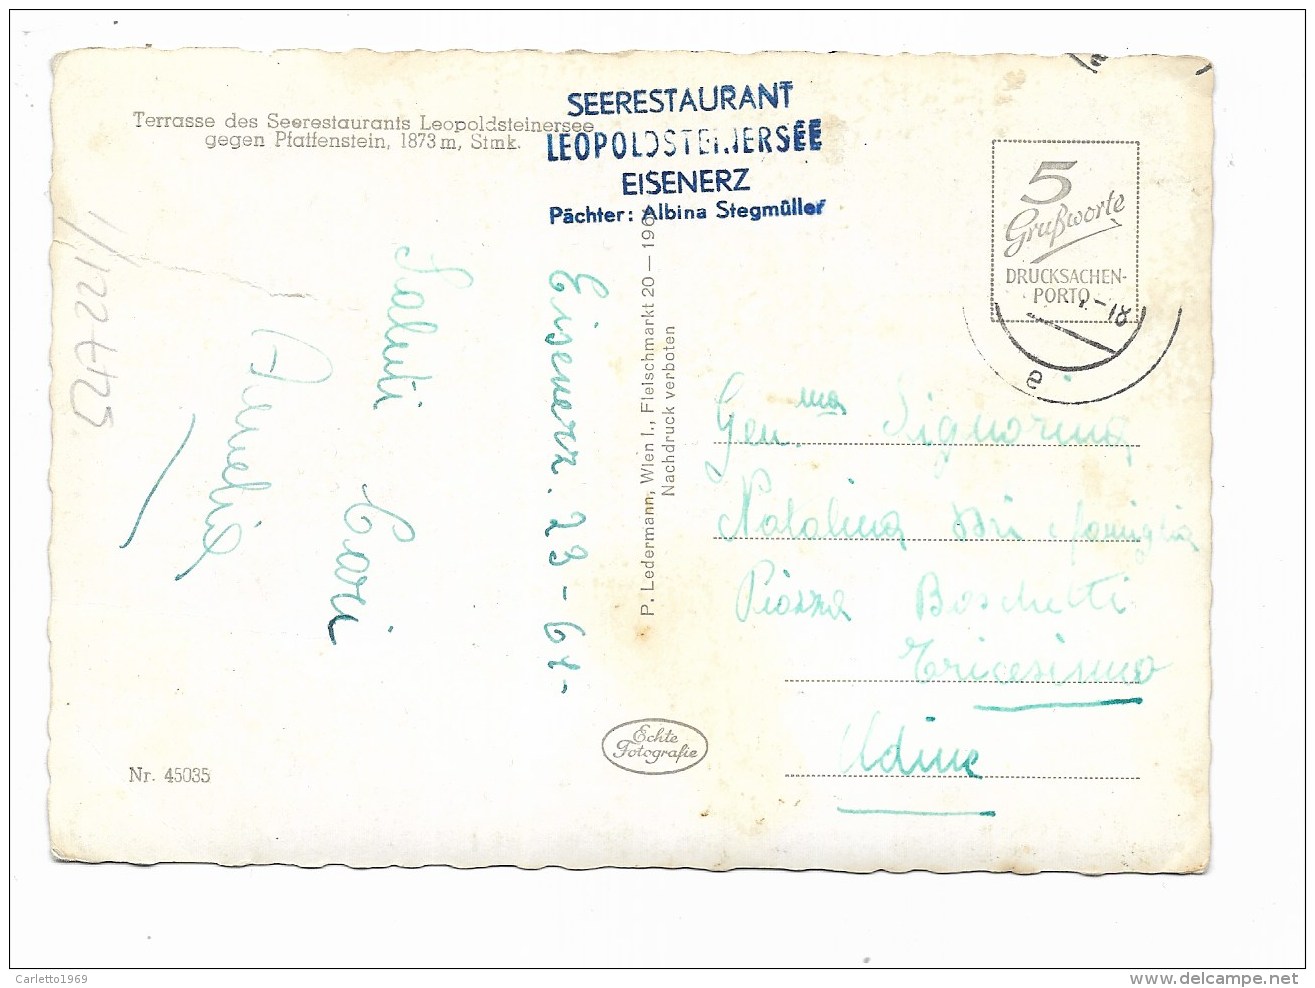 Terrasse des Seerestaurants Leopoldsteinersee
gegen Pfaffenstein, 1873 m, Stmk.
SEERESTAURANT
LEOPOLDSTEINERSEE
EISENERZ
Pächter: Albina Stegmüller
5
Grußworte
DRUCKSACHEN-
PORTO
Eisenerz. 23-61-
Saluti
Cari
Amelia
P. Ledermann, Wien I., Fleischmarkt 20—1961
Nachdruck verboten
Gen.ma Signorina
Natalina e famiglia
Piazza Boschetti
Tricesimo
Udine
Echte
Fotografie
Nr. 45035
Carletto1969
delcampe.net